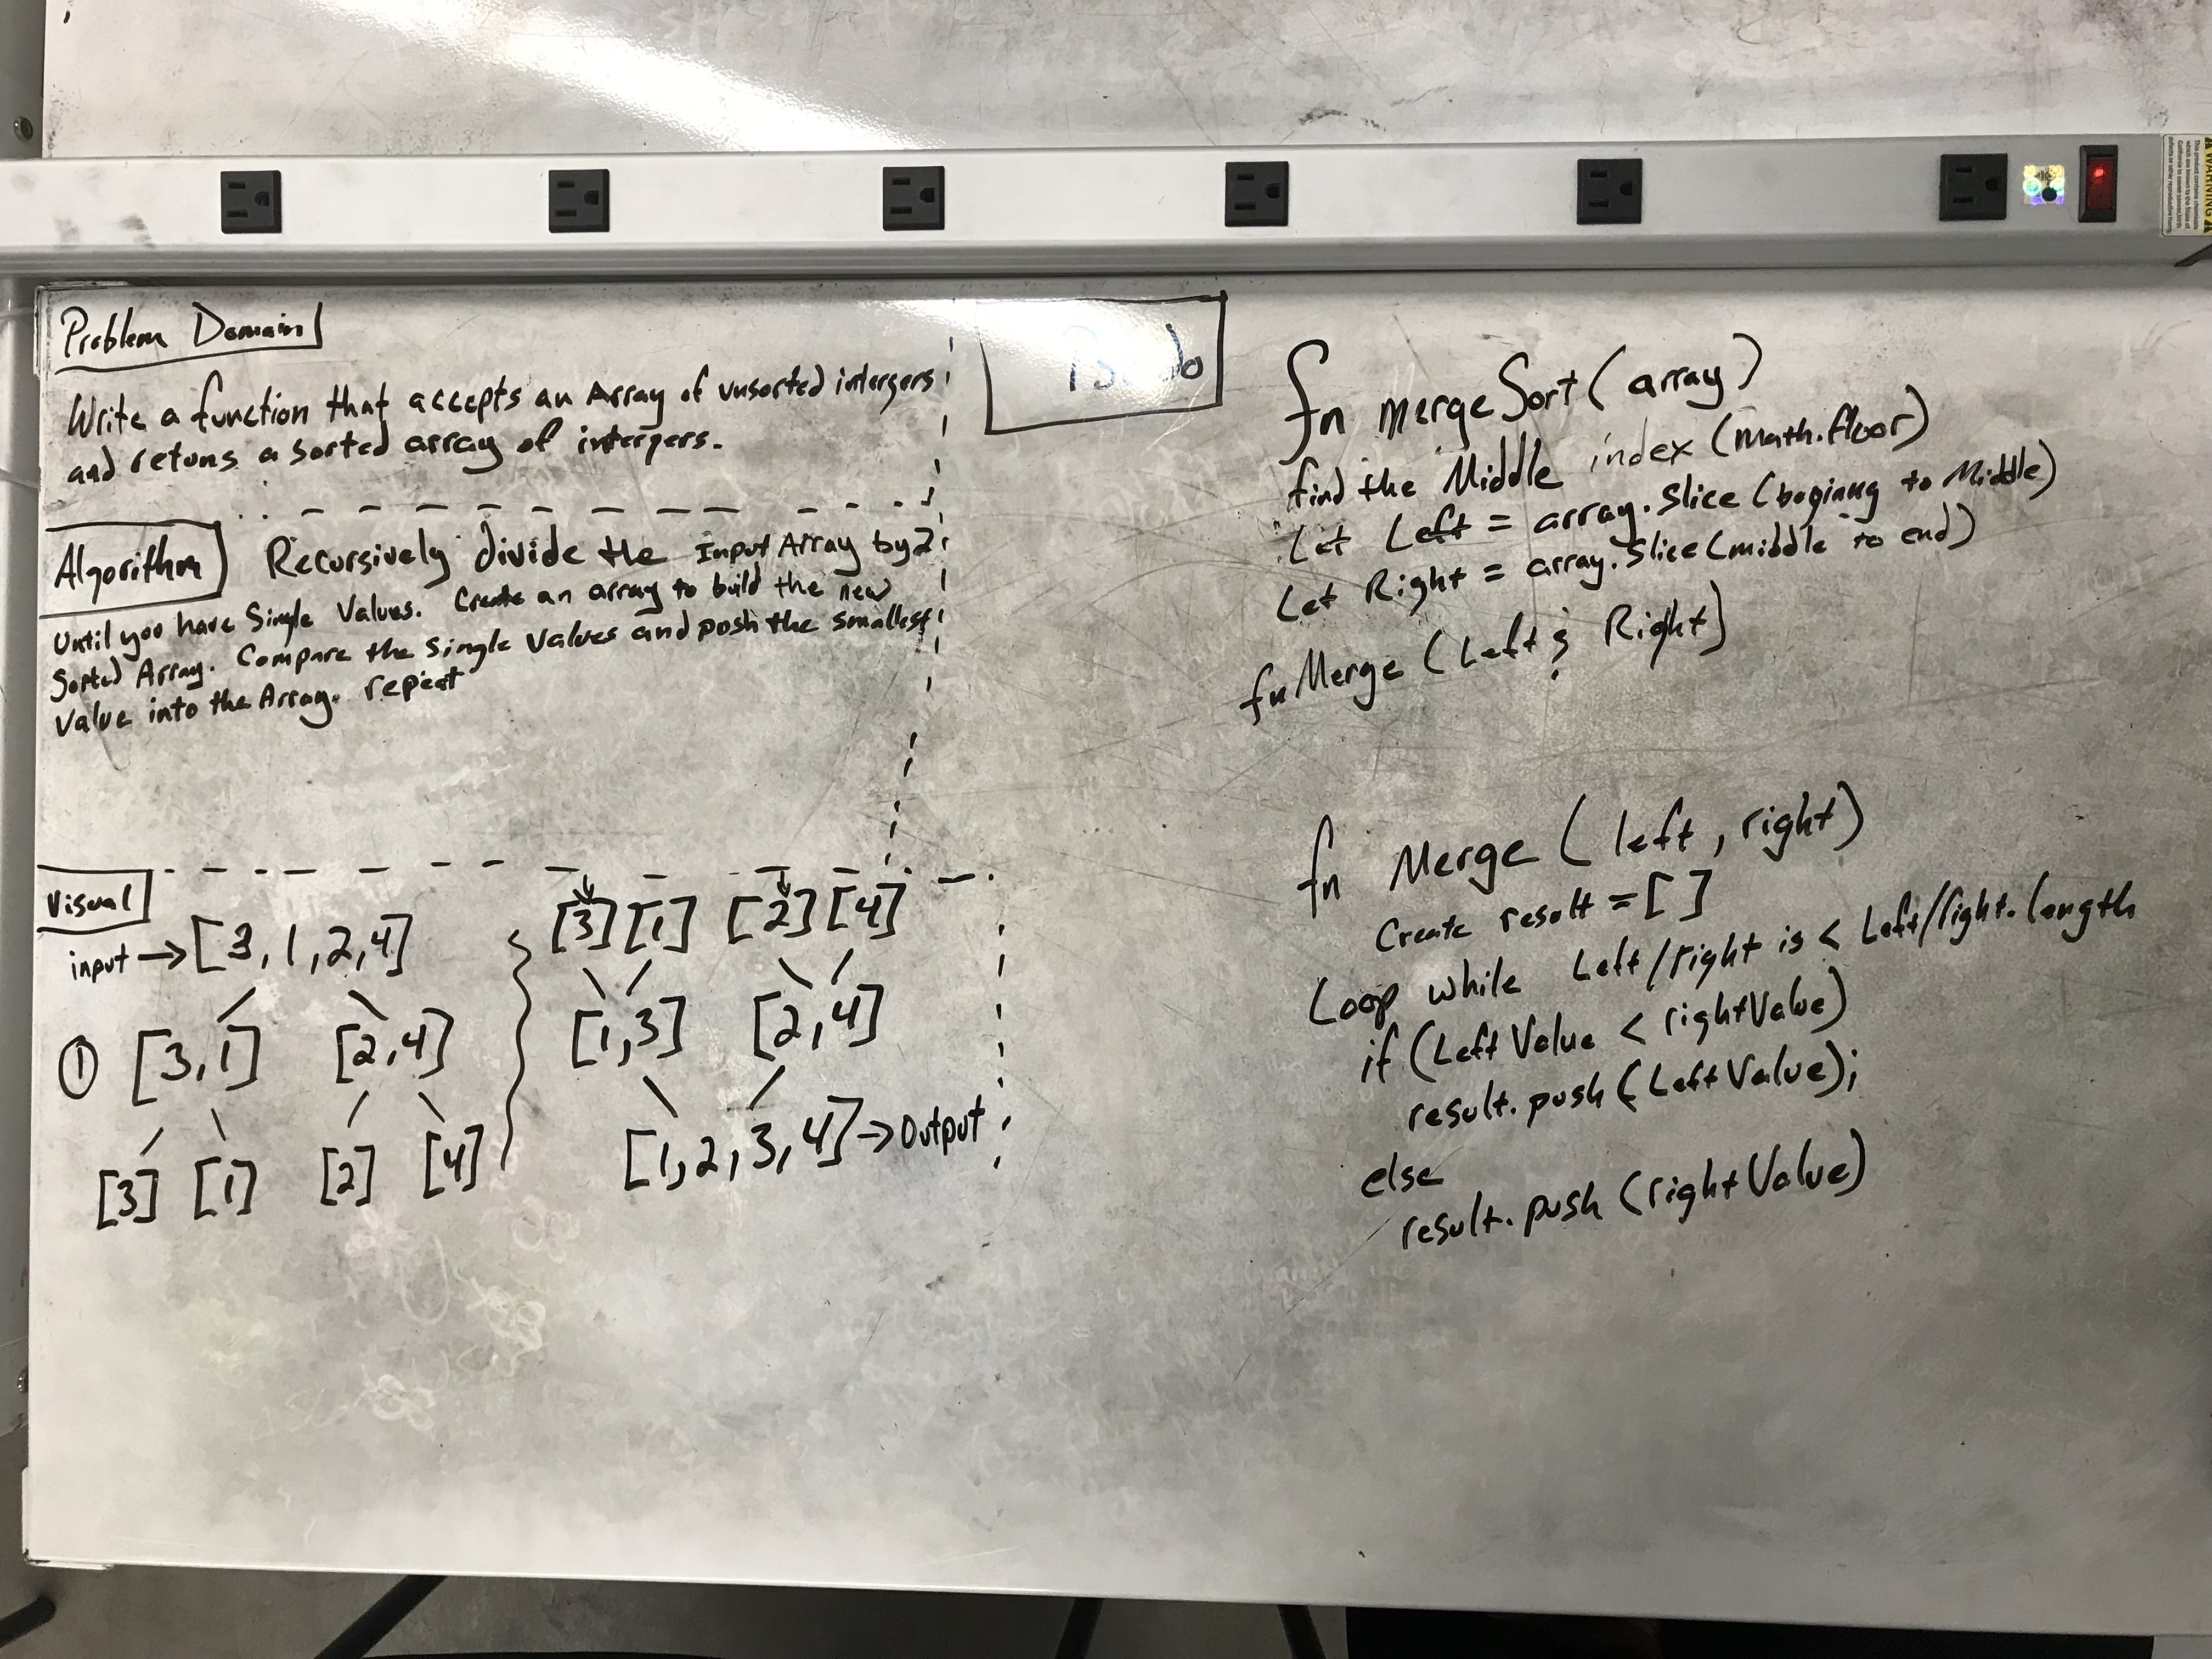 Problem Domain
Write a function that accepts an Array of unsorted intergers
and retuns a sorted array of intergers.
Algorithm Recursively divide the Input Array by 2
Until you have Single Values. Create an array to build the new
Sorted Array. Compare the Single Values and push the smallest
Value into the Array. repeat
Visual
input → [3, 1, 2, 4]
① [3, 1] [2, 4]
[3] [1] [2] [4]
[3] [1] [2] [4]
[1, 3] [2, 4]
[1, 2, 3, 4] → Output
fn mergeSort (array)
find the Middle index (math.floor)
Let Left = array.slice (beginng to Middle)
Let Right = array.slice (middle to end)
fn Merge (Left & Right)
fn Merge (left, right)
Create result = []
Loop while Left/right is < Left/right.length
if (Left Value < rightValue)
result.push (Left Value);
else
result.push (right Value)
WARNING